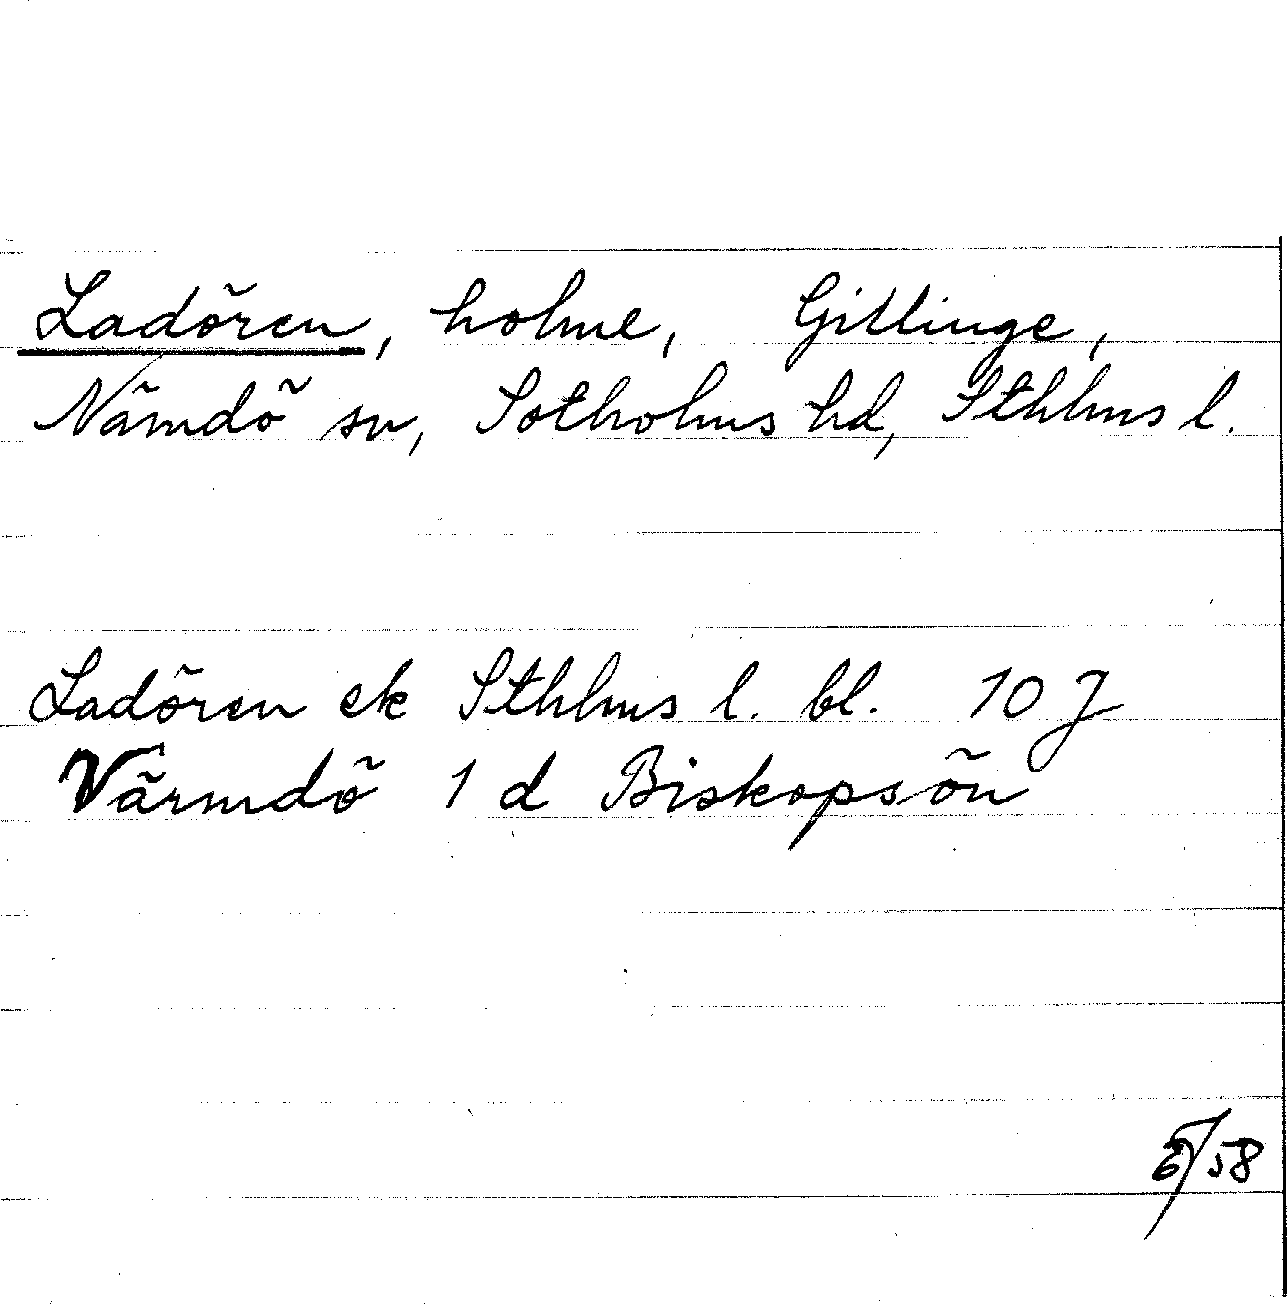 Ladören, holme, Gillinge,
Nämdö sn, Sotholms hd, Sthlms l.
Ladören ek Sthlms l. bl. 10 J
Värmdö 1 d Biskopsön
/58